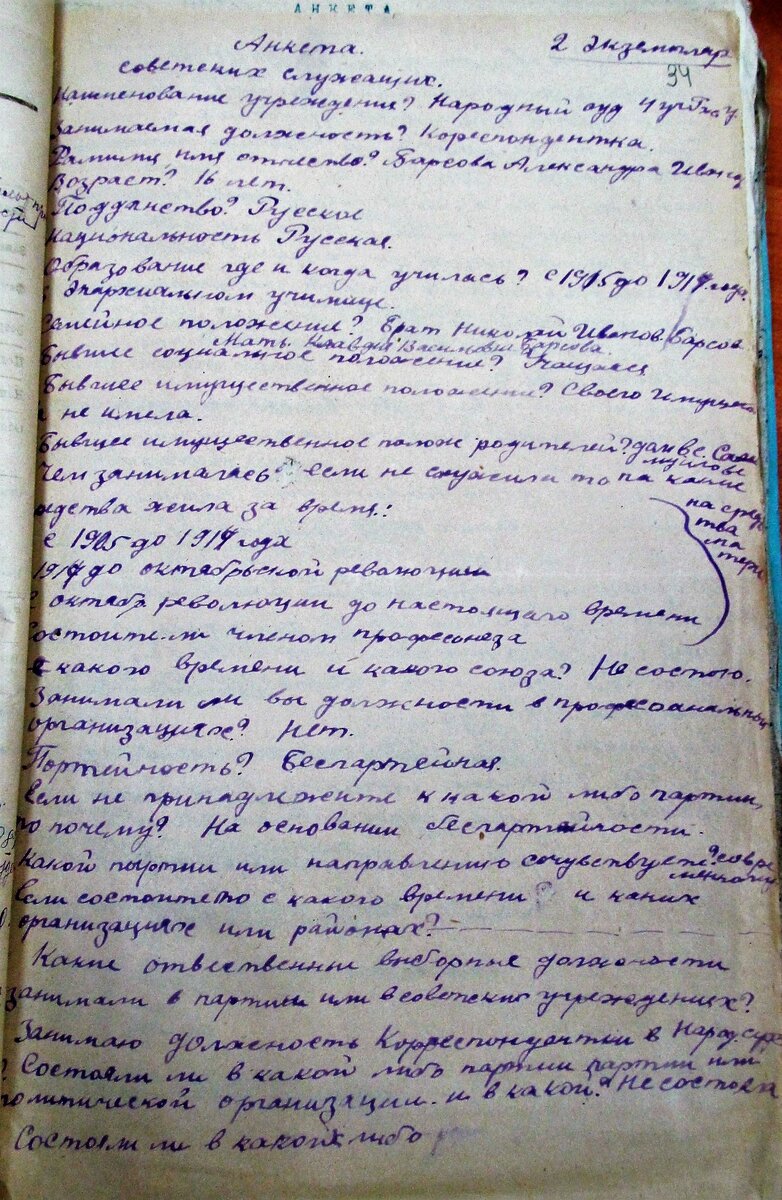 АНКЕТА
Анкета. 2 экземпляр
34
советских служащих.
Наименование учреждения? Народный суд 4 уч
Занимаемая должность? Кореспондентка.
Фамилия имя отчество? Барсова Александра Иванов
Возраст? 16 лет.
Подданство? Русское
Национальность Русская.
Образование где и когда училась? с 1915 до 1917 года.
в Эпархиальном училище.
Семейное положение? Брат Николай Иванов. Барсов
Мать Клавдия Васильевна Барсова.
Бывшее социальное положение? Учащаяся
Бывшее имущественное положение? Своего Имущес
а не имела.
Бывшее имущественное полож родителей? дом в с.
Чем занималась если не служила то на какие
едства жила за время:
на средс
тва
ма
тери
с 1905 до 1917 года
1917 до октябрьской революции
с октябр революции до настоящего времени
Состоите-ли членом професоюза
с какого времени и какого союза? Не состою.
Занимали ли вы должности в професиональных
организациях? Нет.
Партейность? Беспартейная.
Если не принадлежите к какой либо партии,
то почему? На основании беспартейности.
Какой партии или направлению сочувствуете?
Если состоите то с какого времени и каких
организациях или районах?
Какие отвественны выборные должности
занимали в партии или в советских учреждениях?
Занимаю должность Корреспондентки в Нар.суде
Состояли ли в какой либо партии партии или
политической организации. и в какой? Не состояла
Состояли ли в каких либо